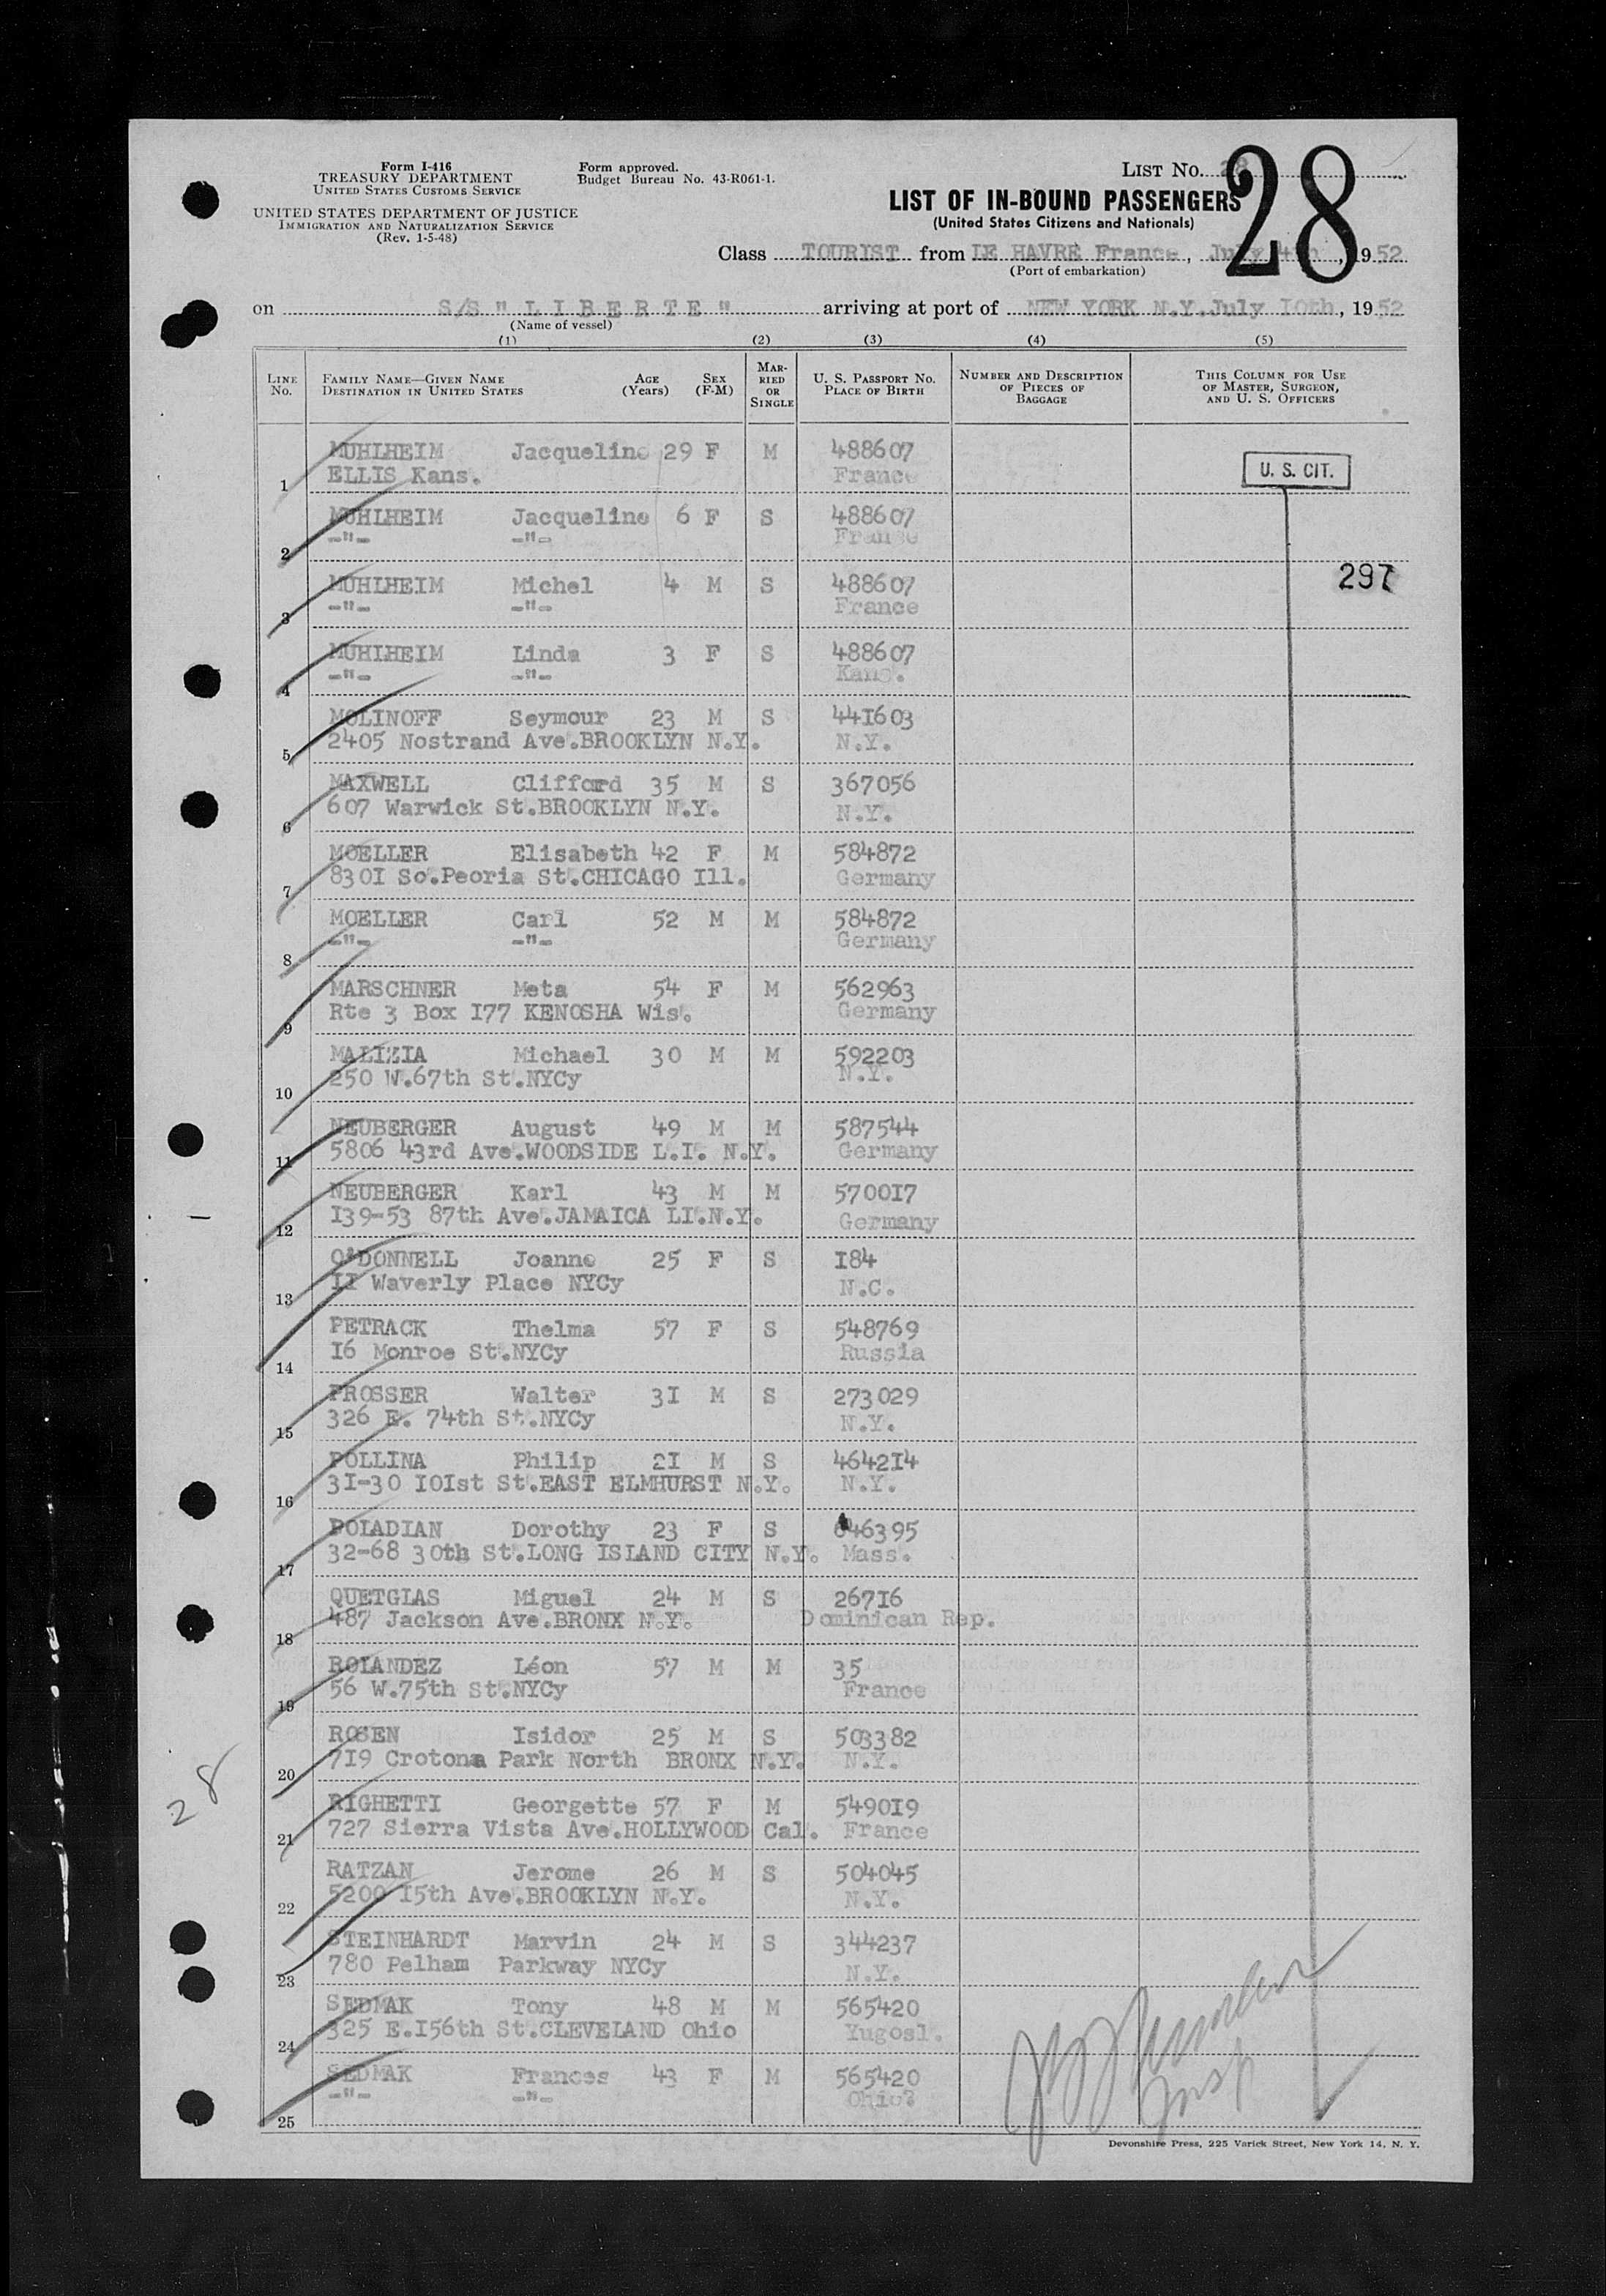 Form I-416
TREASURY DEPARTMENT
UNITED STATES CUSTOMS SERVICE
UNITED STATES DEPARTMENT OF JUSTICE
IMMIGRATION AND NATURALIZATION SERVICE
(Rev. 1-5-48)
Form approved.
Budget Bureau No. 43-R061-1.
LIST No. 28
28
LIST OF IN-BOUND PASSENGERS
(United States Citizens and Nationals)
Class TOURIST from LE HAVRE France, July 4th, 1952
(Port of embarkation)
on S/S " L I B E R T E " arriving at port of NEW YORK N.Y. July I0th, 1952
(Name of vessel)
(1) (2) (3) (4) (5)
LINE No. FAMILY NAME—GIVEN NAME DESTINATION IN UNITED STATES AGE (Years) SEX (F-M) MARRIED OR SINGLE U. S. PASSPORT NO. PLACE OF BIRTH NUMBER AND DESCRIPTION OF PIECES OF BAGGAGE THIS COLUMN FOR USE OF MASTER, SURGEON, AND U. S. OFFICERS
MUHLHEIM Jacqueline 29 F M 488607
1 ELLIS Kans. France U. S. CIT.
MUHLHEIM Jacqueline 6 F S 488607
2 -"- -"- France
MUHLHEIM Michel 4 M S 488607 297
3 -"- -"- France
MUHLHEIM Linda 3 F S 488607
4 -"- -"- Kans.
MOLINOFF Seymour 23 M S 44I603
5 2405 Nostrand Ave.BROOKLYN N.Y. N.Y.
MAXWELL Clifford 35 M S 367056
6 607 Warwick St.BROOKLYN N.Y. N.Y.
MOELLER Elisabeth 42 F M 584872
7 830I So.Peoria St.CHICAGO Ill. Germany
MOELLER Carl 52 M M 584872
8 -"- -"- Germany
MARSCHNER Meta 54 F M 562963
9 Rte 3 Box I77 KENOSHA Wis. Germany
MALIZIA Michael 30 M M 592203
10 250 W.67th St.NYCy N.Y.
NEUBERGER August 49 M M 587544
11 5806 43rd Ave.WOODSIDE L.I. N.Y. Germany
NEUBERGER Karl 43 M M 5700I7
12 I39-53 87th Ave.JAMAICA LI.N.Y. Germany
O'DONNELL Joanne 25 F S I84
13 II Waverly Place NYCy N.C.
PETRACK Thelma 57 F S 548769
14 I6 Monroe St.NYCy Russia
PROSSER Walter 3I M S 273029
15 326 E. 74th St.NYCy N.Y.
POLLINA Philip 2I M S 4642I4
16 3I-30 I0Ist St.EAST ELMHURST N.Y. N.Y.
POLADIAN Dorothy 23 F S 646395
17 32-68 30th St.LONG ISLAND CITY N.Y. Mass.
QUETGLAS Miguel 24 M S 267I6
18 487 Jackson Ave.BRONX N.Y. Dominican Rep.
ROLANDEZ Léon 57 M M 35
19 56 W.75th St.NYCy France
ROSEN Isidor 25 M S 503382
20 7I9 Crotona Park North BRONX N.Y. N.Y.
RIGHETTI Georgette 57 F M 5490I9
21 727 Sierra Vista Ave.HOLLYWOOD Cal. France
RATZAN Jerome 26 M S 504045
22 5200 I5th Ave.BROOKLYN N.Y. N.Y.
STEINHARDT Marvin 24 M S 344237
23 780 Pelham Parkway NYCy N.Y.
SEDMAK Tony 48 M M 565420
24 325 E.I56th St.CLEVELAND Ohio Yugosl.
SEDMAK Frances 43 F M 565420
25 -"- -"- Ohio?
Insp
28
Devonshire Press, 225 Varick Street, New York 14, N. Y.